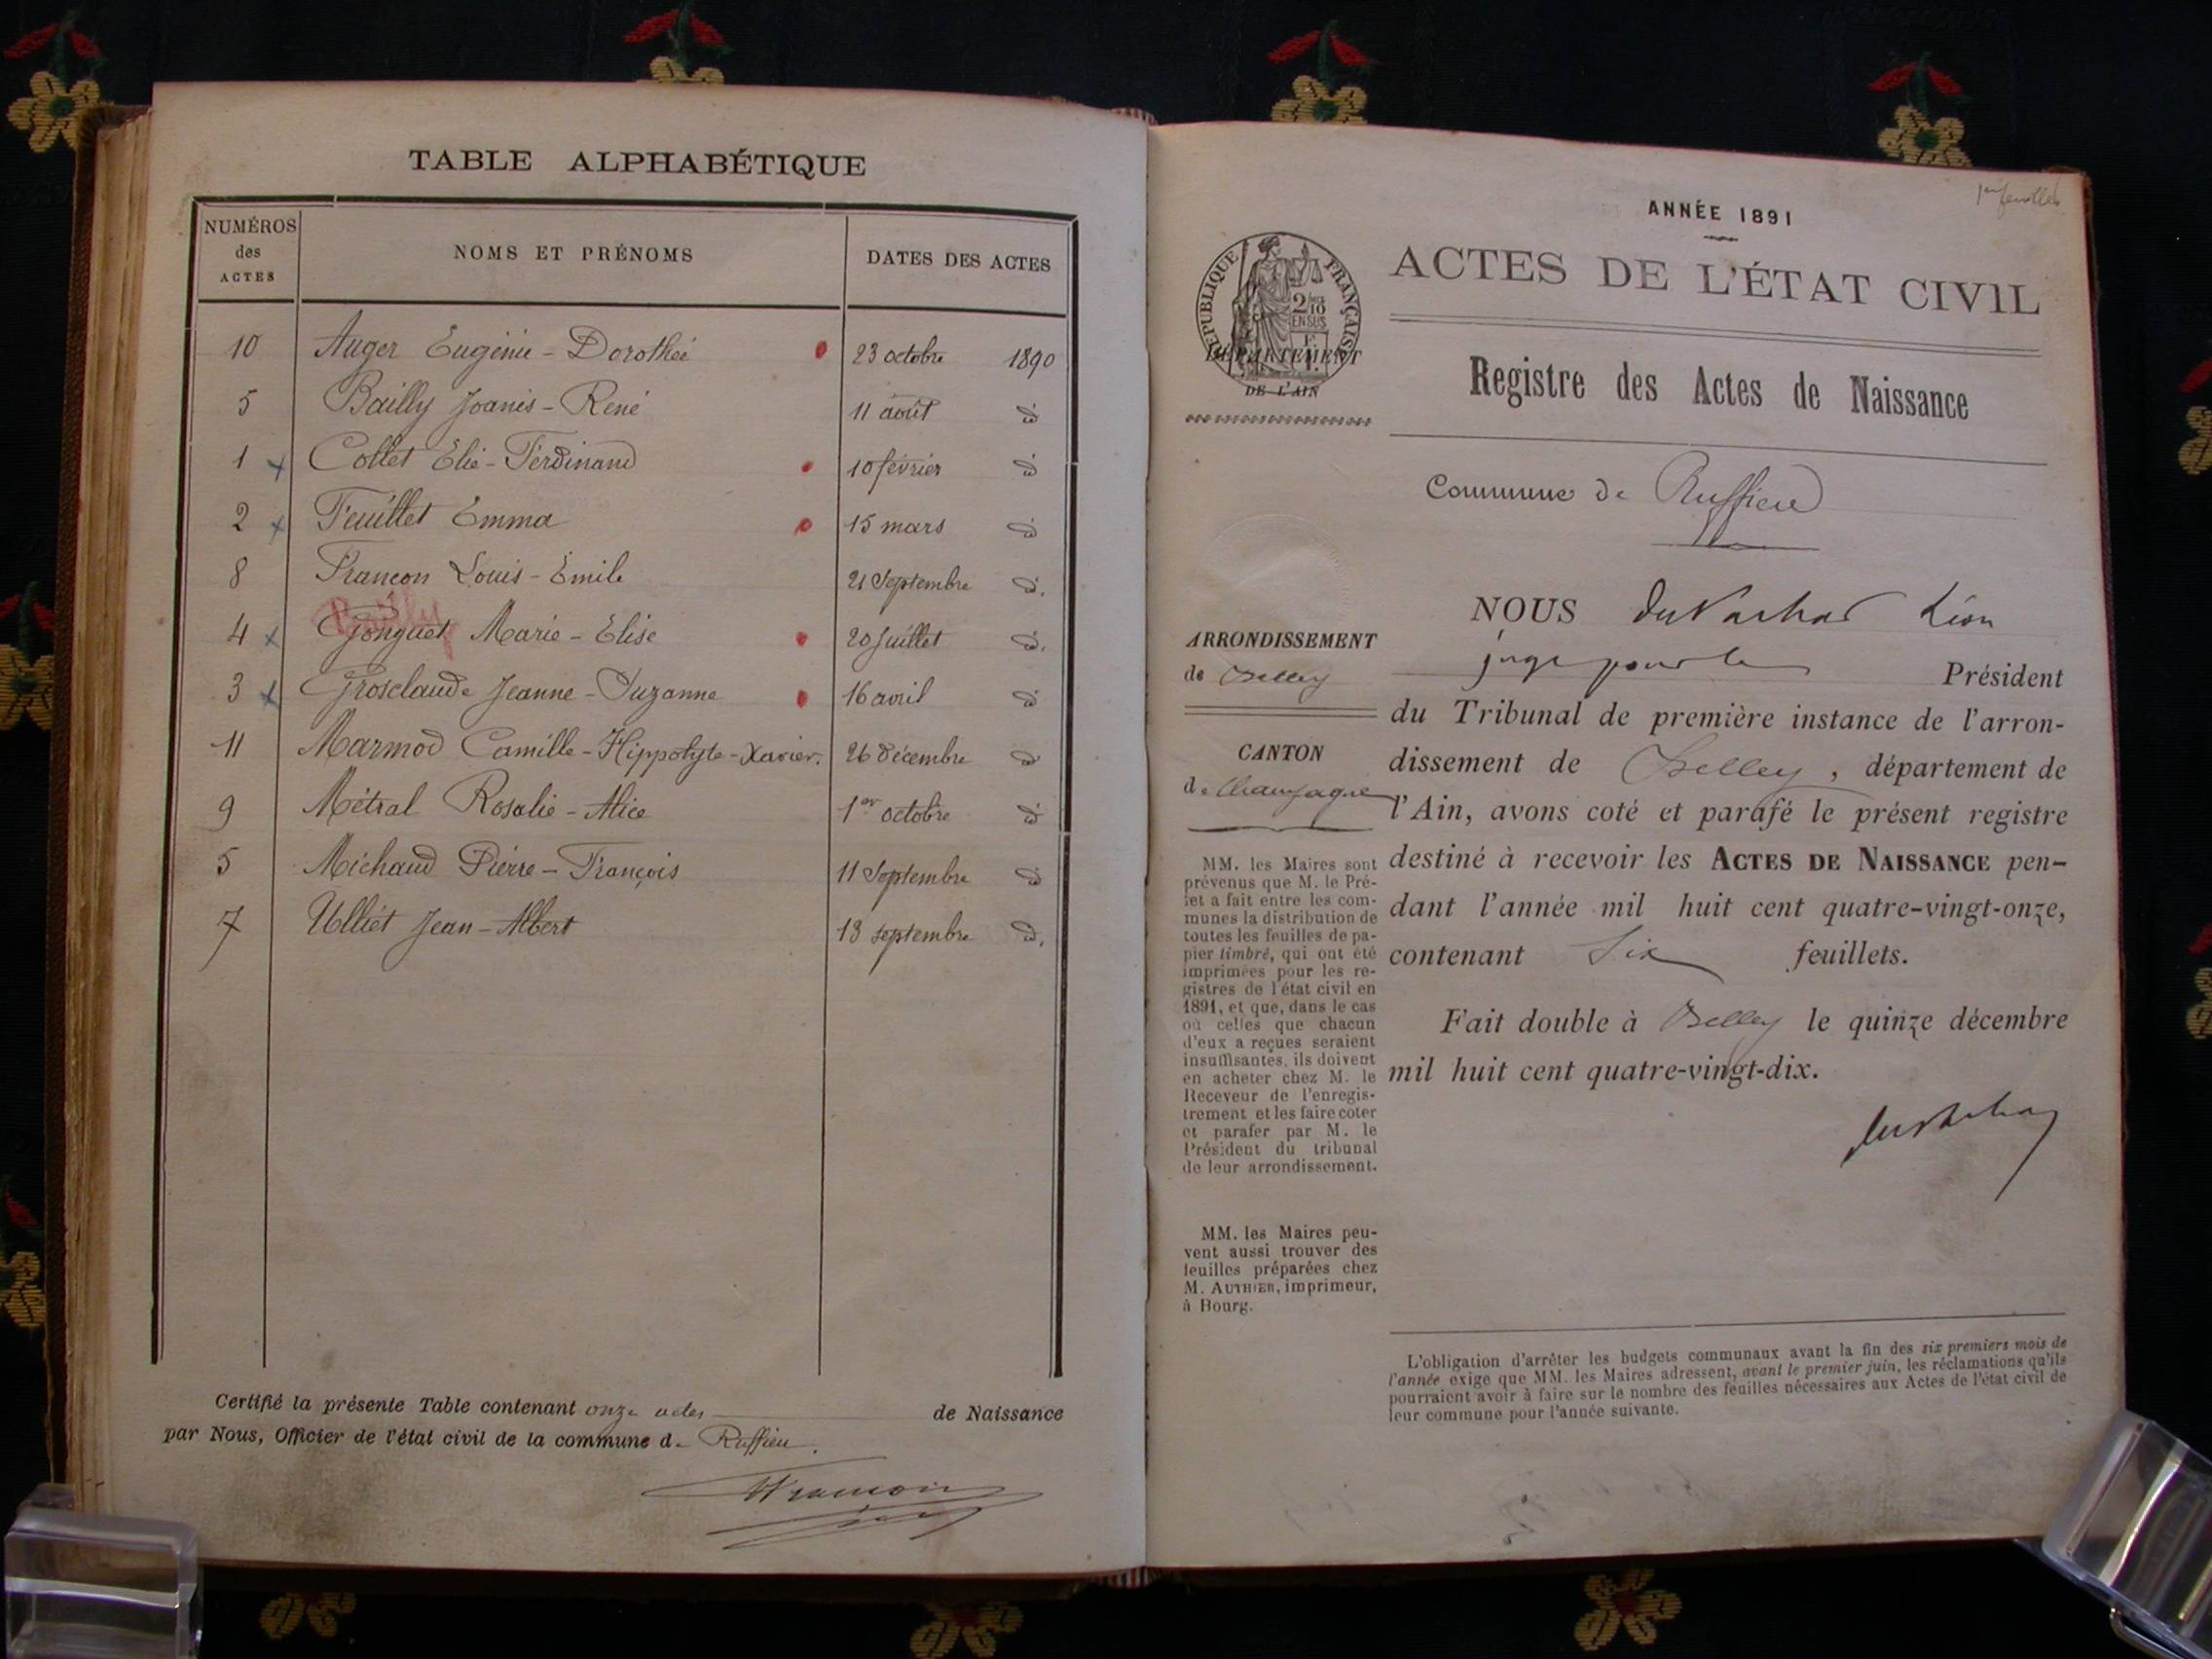 TABLE ALPHABÉTIQUE
NUMÉROS des ACTES
NOMS ET PRÉNOMS
DATES DES ACTES
10 Auger Eugénie - Dorothée 23 octobre 1890
5 Bailly Joanis - René 11 août d°
1 Collet Elie - Ferdinand 10 février d°
2 Feuillet Emma 15 mars d°
8 Françon Louis - Emile 21 Septembre d°
Bailly
4 Gonguet Marie - Elise 20 Juillet d°
3 Grosclaude Jeanne - Suzanne 16 avril d°
11 Marmod Camille - Hippolyte - Xavier. 26 décembre d°
9 Métral Rosalie - Alice 1er octobre d°
5 Michaud Pierre - François 11 Septembre d°
7 Ulliet Jean - Albert 13 septembre d°
Certifié la présente Table contenant onze actes de Naissance
par Nous, Officier de l'état civil de la commune d. Ruffieu.
1er feuillet
ANNÉE 1891
ACTES DE L'ÉTAT CIVIL
RÉPUBLIQUE FRANÇAISE
2/10
EN SUS
DÉPARTEMENT
DE L'AIN
Registre des Actes de Naissance
Commune de Ruffieu
ARRONDISSEMENT
de Belley
CANTON
de Champagne
MM. les Maires sont
prévenus que M. le Pré-
fet a fait entre les com-
munes la distribution de
toutes les feuilles de pa-
pier timbré, qui ont été
imprimées pour les re-
gistres de l'état civil en
1891, et que, dans le cas
où celles que chacun
d'eux a reçues seraient
insuffisantes, ils doivent
en acheter chez M. le
Receveur de l'enregis-
trement et les faire coter
et parafer par M. le
Président du tribunal
de leur arrondissement.
MM. les Maires peu-
vent aussi trouver des
feuilles préparées chez
M. AUTHIER, imprimeur,
à Bourg.
NOUS Léon
juge pour le Président
du Tribunal de première instance de l'arron-
dissement de Belley, département de
l'Ain, avons coté et parafé le présent registre
destiné à recevoir les ACTES DE NAISSANCE pen-
dant l'année mil huit cent quatre-vingt-onze,
contenant Six feuillets.
Fait double à Belley le quinze décembre
mil huit cent quatre-vingt-dix.
L'obligation d'arrêter les budgets communaux avant la fin des six premiers mois de
l'année exige que MM. les Maires adressent, avant le premier juin, les réclamations qu'ils
pourraient avoir à faire sur le nombre des feuilles nécessaires aux Actes de l'état civil de
leur commune pour l'année suivante.